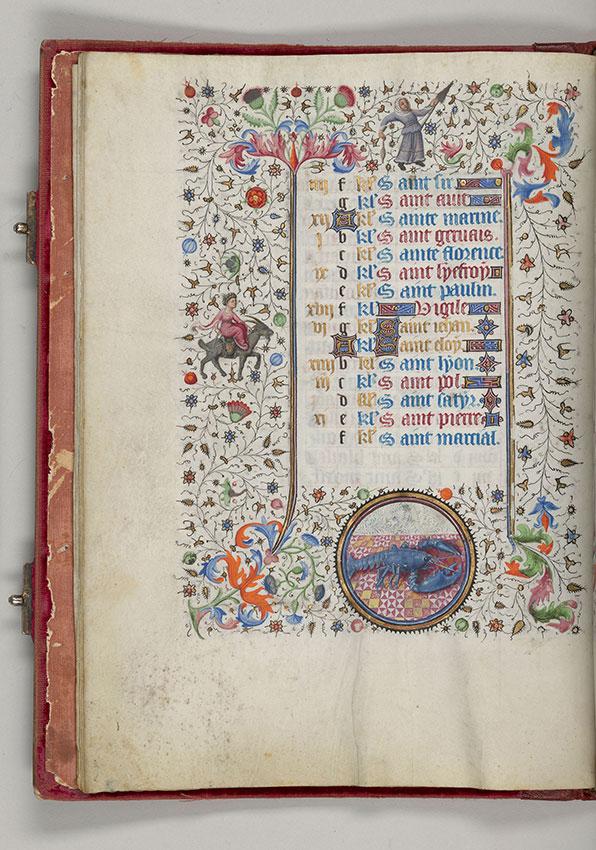 iiij f kl' Saint sir
g kl' Saint auit
xij A kl' Sainte marine.
j b kl' Saint geruais.
c kl' Sainte florence
ix d kl' Saint lyefroy
e kl' Saint paulin.
xvij f kl' Vigile
vj g kl' Saint iehan.
A kl' Saint eloy.
xiiij b kl' Saint lyon
iij c kl' Saint pol
d kl' Saint satyr.
xj e kl' Saint pierre
f kl' Saint marcial.